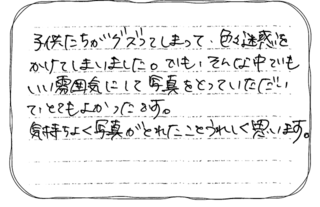 子供たちがグズってしまって、色々迷惑を
かけてしまいました。でも、そんな中でも
いい雰囲気にして写真をとっていただい
てとてもよかったです。
気持ちよく写真がとれたことうれしく思います。